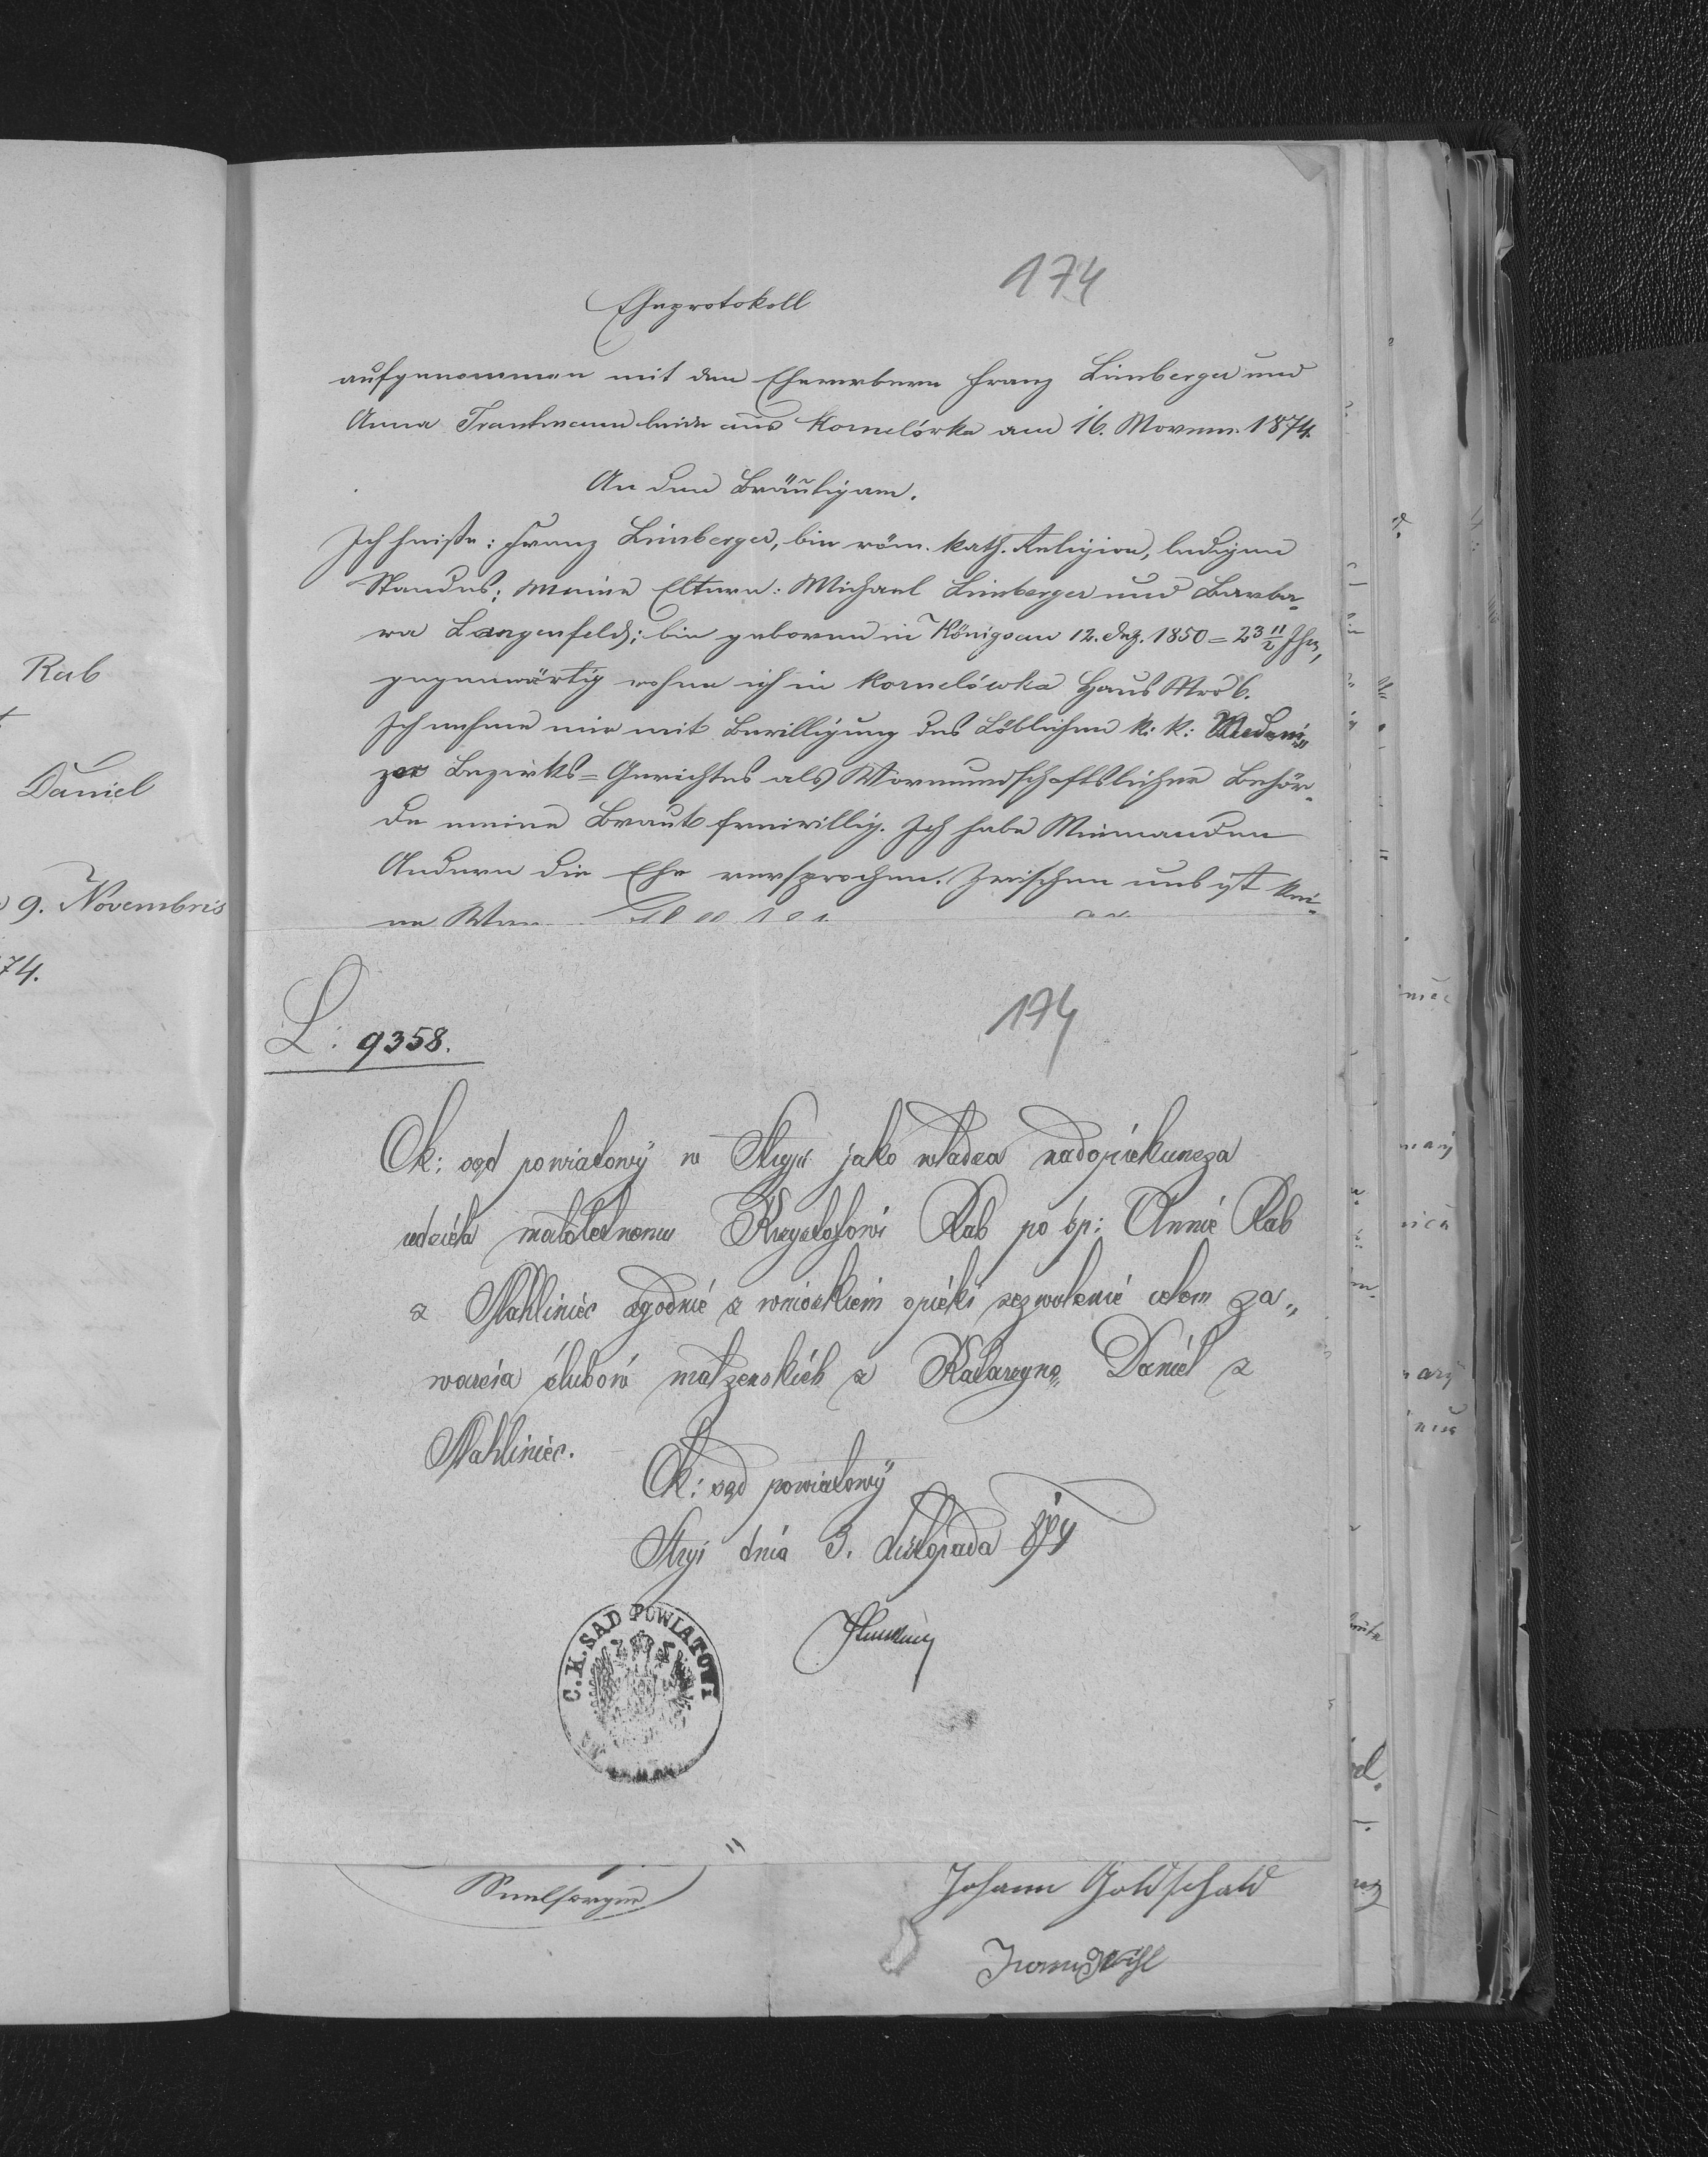 Rab
Daniel
9. Novembris
74.
174
Eheprotokoll
aufgenommen mit den Ehewerbern Franz Limberger und
Anna Trautmann beide aus Kornelówka am 16. Novem. 1874.
An den Bräutigam.
Ich heiße: Franz Limberger, bin röm. kath. Religion, ledigen
Standes; meine Eltern: Michael Limberger und Barba-
ra Langenfeld; bin geboren in Königsau 12. Dez. 1850 = 23 11/2 Jhr,
gegenwärtig wohne ich in Kornelówka Haus Nro 6.
Ich nehme mir mit Bewilligung des Löblichen k: k: Medeni„
zer Bezirks=Gerichtes als Vormundschaftslicher Behör-
de meine Braut freiwillig. Ich habe Niemanden
Andern die Ehe versprochen. Zwischen uns ist kei-
ne
174
L: 9358.
Ck: sąd powiatowy w Stryju jako władza nadopiekuncza
udziela małoletnemu Krzysztofowi Rab po śp: Annie Rab
z Nahliniec zgodnie z wnioskiem opieki zezwolenie celem za„
warcia ślubów małżenskich z Katarzyną Daniel z
Nahliniec.
Ck: sąd powiatowy
Stryj dnia 3. Listopada 874
C.K. SĄD POWIATOWY
Seelsorger
Johann Goldschald